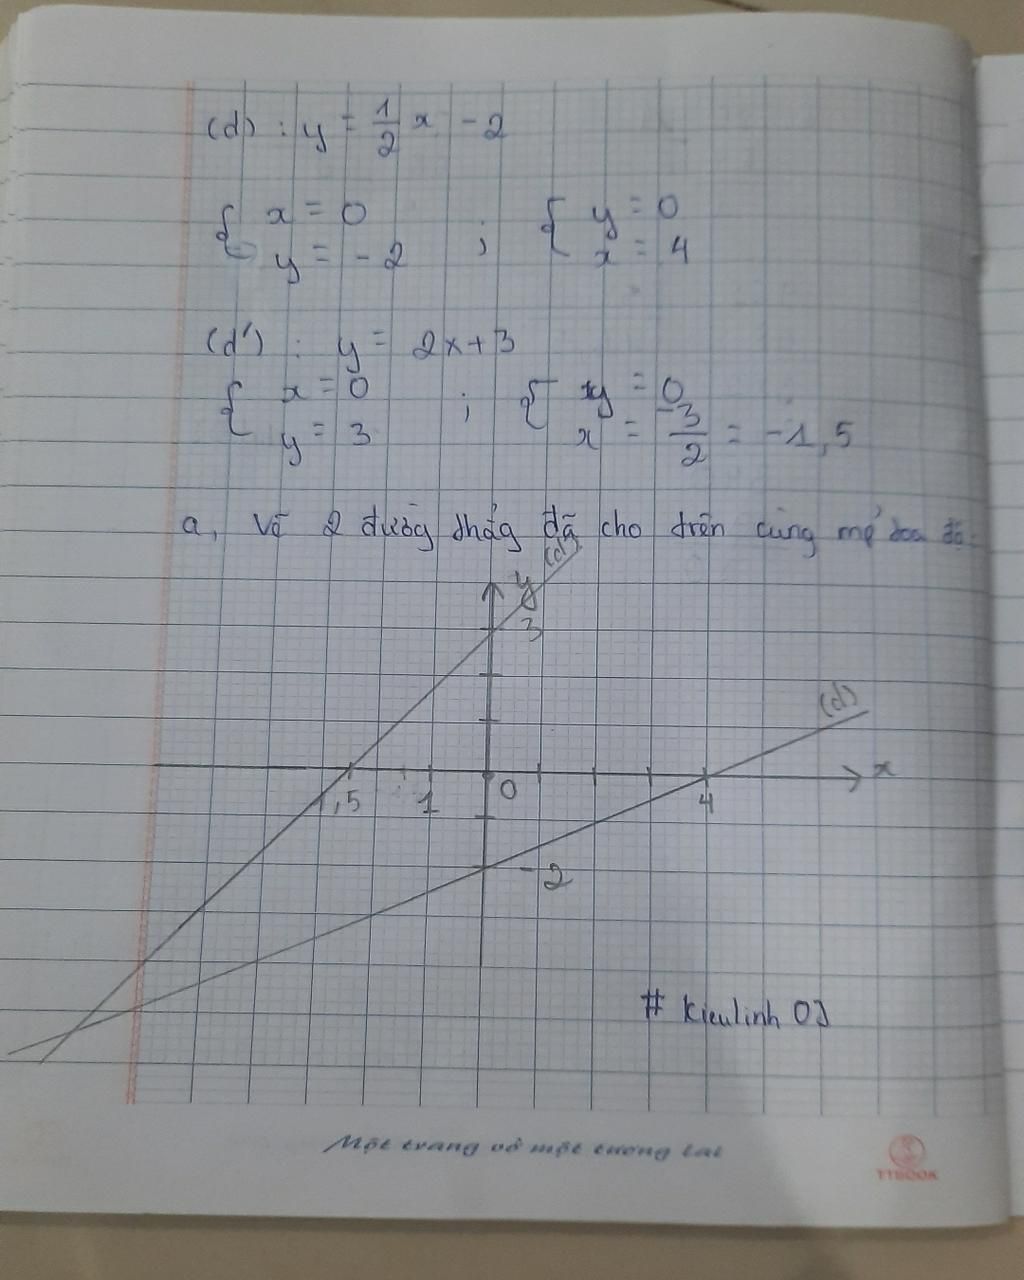 (d) : y = 1/2 x - 2
{ x = 0 ; { y = 0
y = -2 x = 4
(d') : y = 2x+3
{ x = 0 ; { y = 0
y = 3 x = -3/2 = -1,5
a, Vẽ 2 đường thẳg đã cho trên cùng mp toạ độ
(d')
y
3
(d)
x
1,5 1 0 4
-2
# Kieulinh
Một trang vở một tương lai
TTBOOK